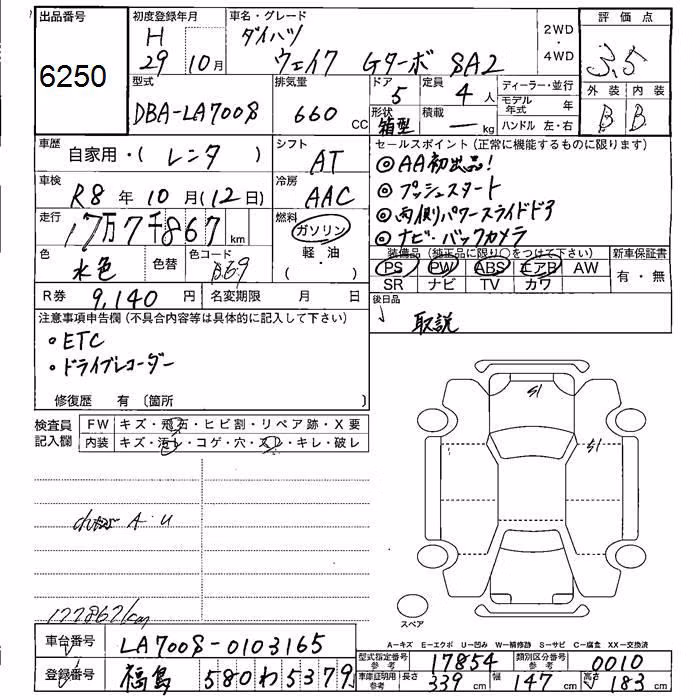 出品番号
6250
初度登録年月
H
29 10月
車名・グレード
ダイハツ
ウェイク Gターボ SA2
2WD
・
4WD
評価点
3.5
型式
DBA-LA700S
排気量
660 CC
ドア
5
定員
4 人
形状
箱型
積載
― kg
ディーラー・並行
モデル年式 年
ハンドル 左・右
外装 内装
B B
車歴
自家用・( レンタ )
シフト
AT
車検
R8 年 10 月(12日)
冷房
AAC
走行
17万7千867 km
燃料
ガソリン
軽・油
( )
色
水色
色替
色コード
B69
R券 9,140 円
名変期限 月 日
セールスポイント(正常に機能するものに限ります)
◎AA初出品!
◎プッシュスタート
◎両側パワースライドドア
◎ナビ・バックカメラ
装備品(純正品に限り○をつけて下さい)
新車保証書
PS PW ABS エアB AW
SR ナビ TV カワ
有・無
後日品
取説
注意事項申告欄(不具合内容等は具体的に記入して下さい)
・ETC
・ドライブレコーダー
修復歴 有 〔箇所 〕
検査員
記入欄
FW キズ・飛石・ヒビ割・リペア跡・X要
内装 キズ・汚レ・コゲ・穴・スレ・キレ・破レ
A・U
177867km
スペア
A-キズ E-エクボ U-凹み W-補修跡 S-サビ C-腐食 XX-交換済
車台番号 LA700S-0103165
登録番号 福島 580 わ 5379
型式指定番号 参考 17854
類別区分番号 参考 0010
車庫証明用 参考 長さ 339 cm 幅 147 cm 高さ 183 cm